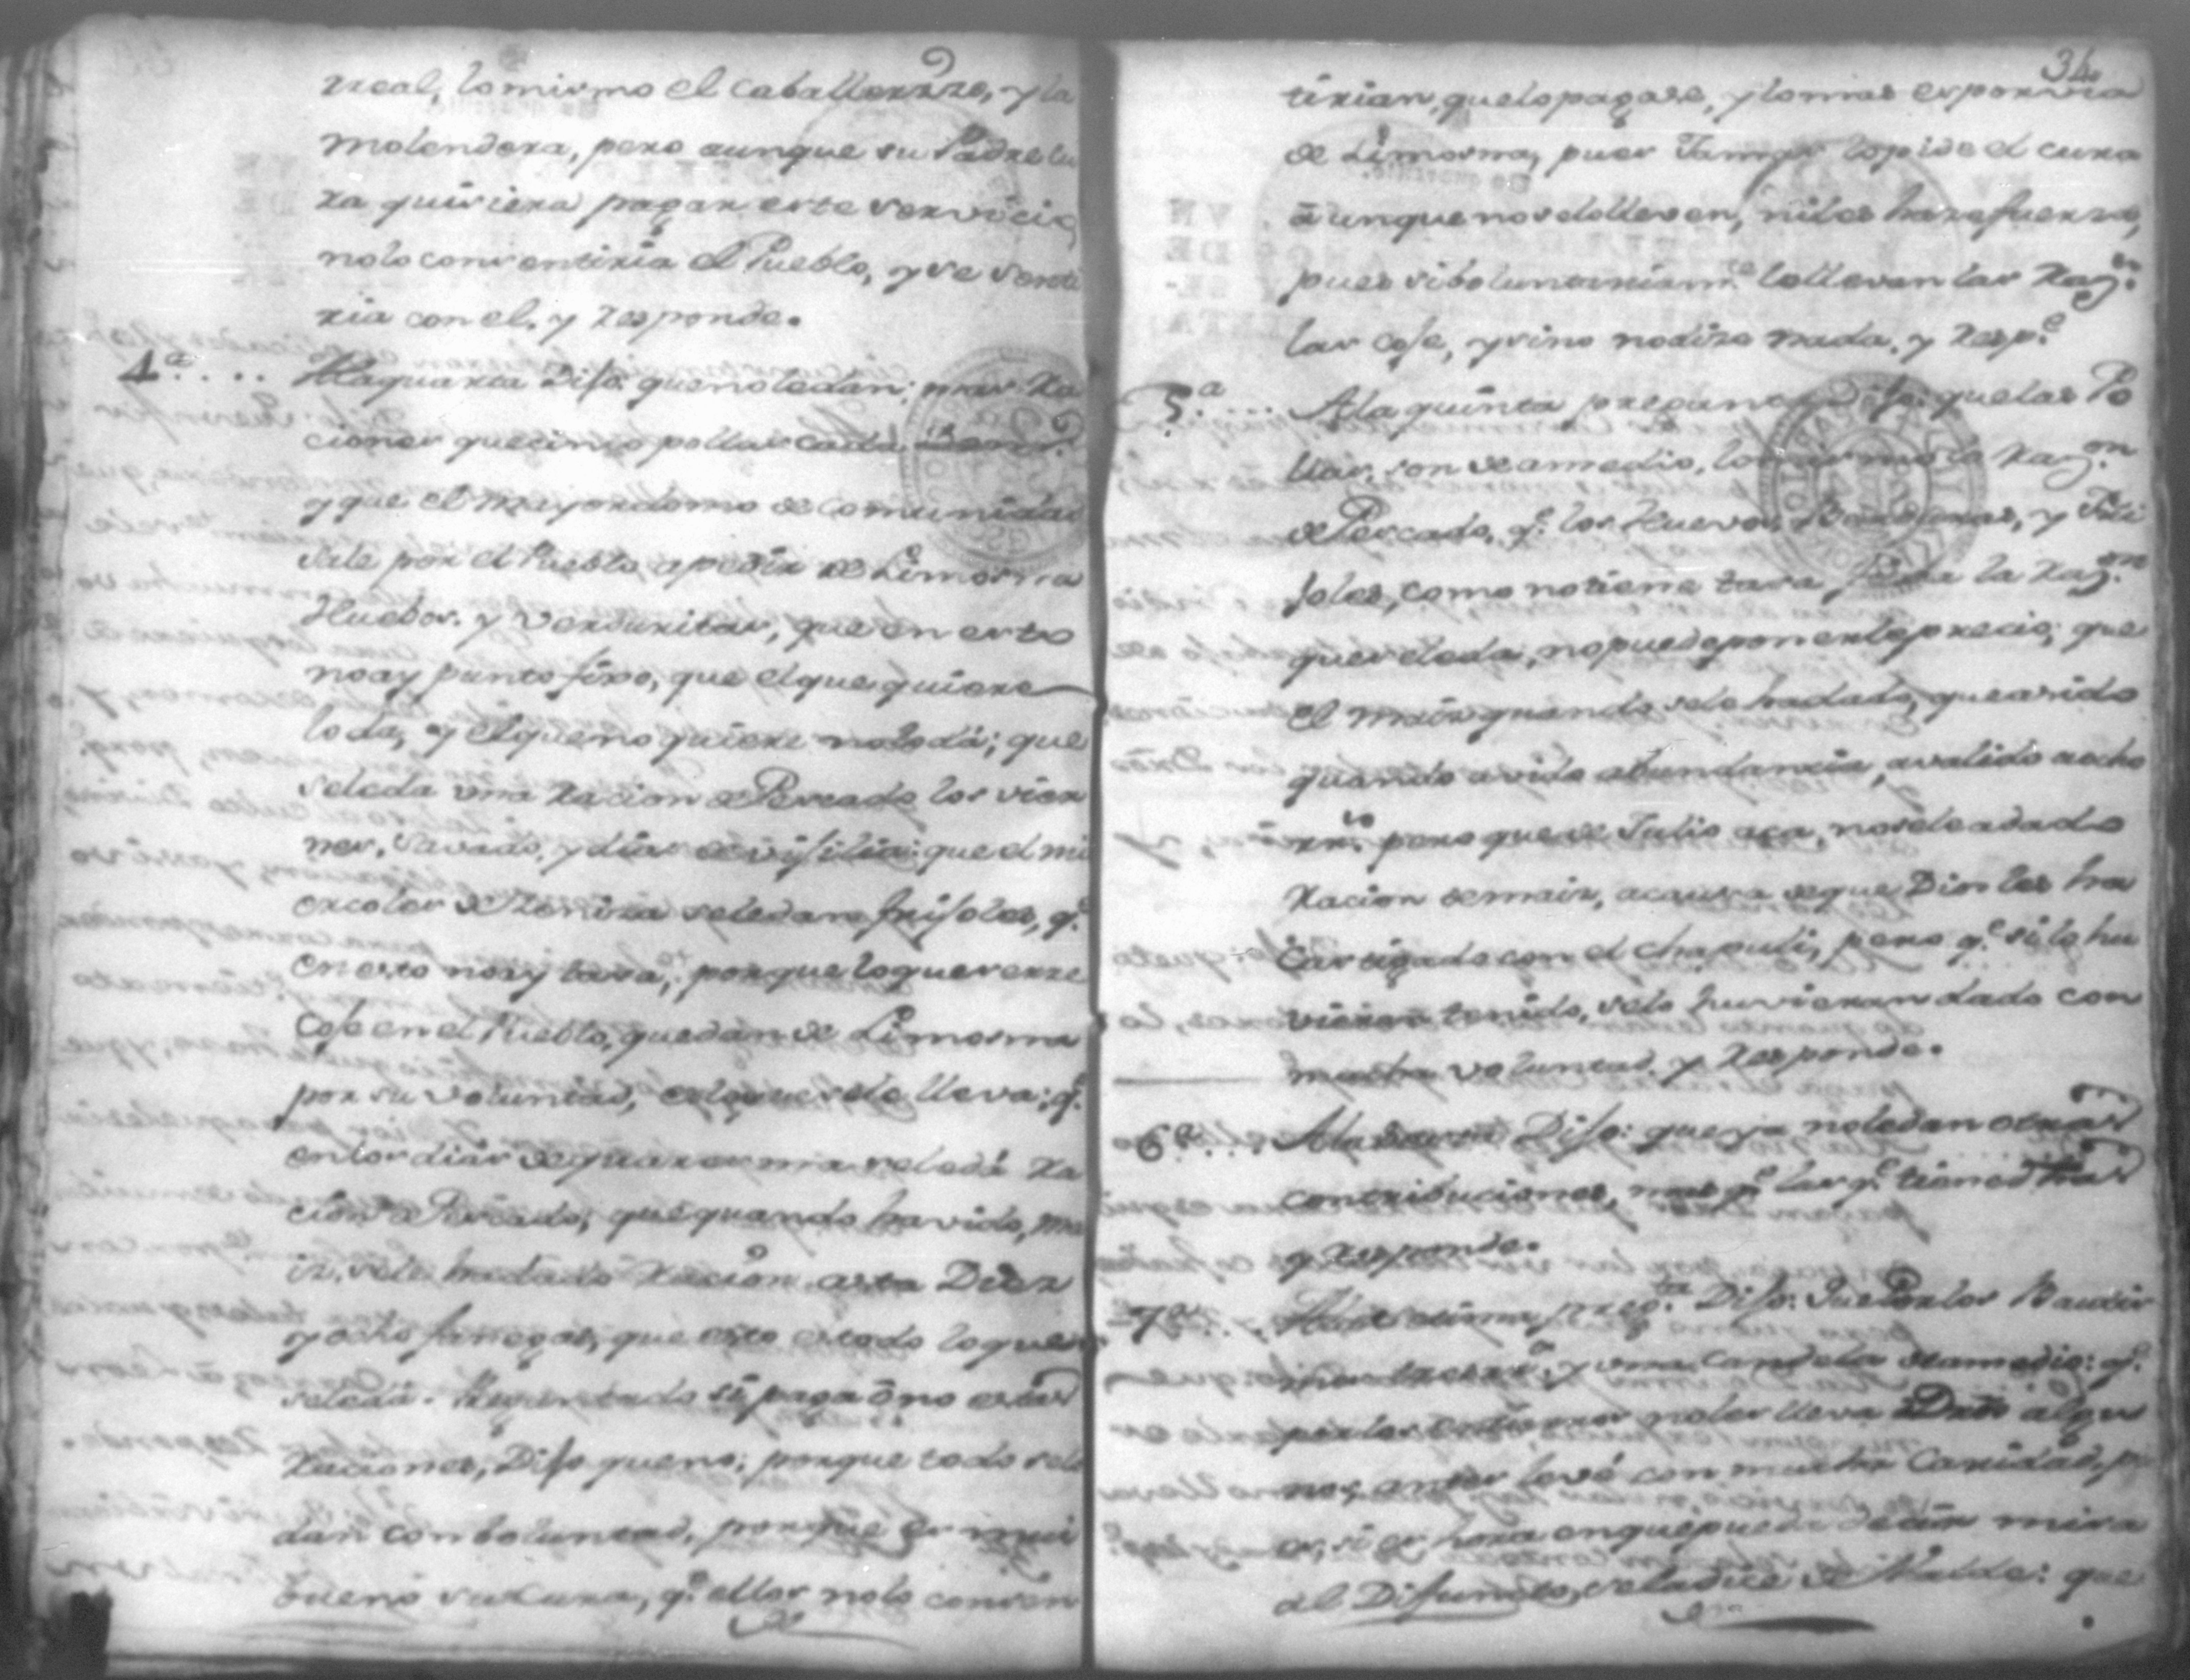 rreal, lo mismo el caballerizo, y la
molendera, pero aunque su Padre Cu
ra quisiera pagar este servicio,
nolo consentiria el Pueblo, y se senti
ria con el, y responde.
4ª.... Alaquarta Dijo: quenoledan; mas Ra
ciones quecinco pollas cada
y que el mayordomo de comunidad
sale por el Pueblo apedir de Limosna
Huebos, y verduritas, que en esto
noay punto fixo, que elque quiere
loda, y elqueno quiere noloda; que
seleda una Racion de Pescado los vier
nes, Savado, y dias de vijilia; que el mi
ercoles de Zeniza seledan frijoles, q.e
en esto noay tasa, porque loque
Coje en el Pueblo, quedan de Limosna
por su voluntad, esloque sele lleva; q.e
enlos dias de quaresma seleda Ra
cion de Pescado; que quando havido, ma
iz, sele hadado Racion asta Diez
y ocho fanegas, que esto estodo loque
seleda. Preguntado si paga ò no estas
Raciones, Dijo queno; porque todo sele
dan con boluntad, porque es mui
bueno su Cura, q.e ellos nolo consen
34
tirian, quelopagase, ylomas esporvia
de Limosna, pues Jamas lopide el cura
aunque noselolleven, niles hase fuerza,
pues siboluntariam.te lollevan las Raz.s
las coje, ysino nodize nada, y resp.e
5ª.... Ala quinta pregunta Dijo: quelas Po
llas, son de amedio, lo mismo la Raz.on
de Pescado, q.e los Huevos, Verduras, y Fri
joles, como notiene tasa la Raz.on
queseleda, nopuedeponerleprecio; que
el maiz quando sele hadado, que asido
quando avido abundancia, avalido aocho
rr.s pero que de Julio aca, noseleadado
Racion demaiz, acausa deque Dios les ha
Castigado con el chapuli, pero q.e silo hu
vieran tenido, selo huvieran dado con
mucha voluntad, y Responde.
6ª.... Ala sexta Dijo: que ya noledan otras
contribuciones, mas q.e las q.e tiene dhas
y Responde.
7ª.... Alaseptima preg.ta Dijo: que Porlos Bautis
mos y una Candela deamedio: q.e
porlos entierros noles lleva Dros algu
nos, antes lové con mucha Caridad, pu
es, si es hora enquepueda decir misa
al Difunto, seladice de Valde: que